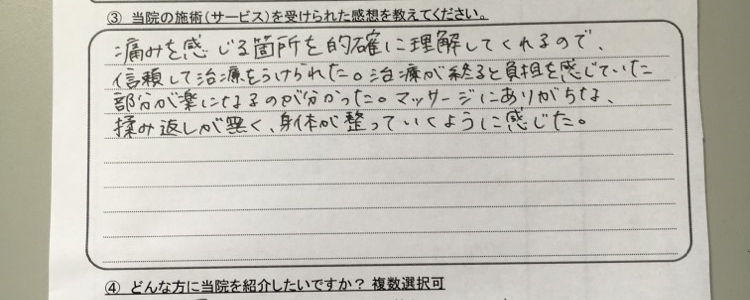 ③ 当院の施術(サービス)を受けられた感想を教えてください。
痛みを感じる箇所を的確に理解してくれるので、
信頼して治療をうけられた。治療が終ると負担を感じていた
部分が楽になるのが分かった。マッサージにありがちな、
揉み返しが無く、身体が整っていくように感じた。
④ どんな方に当院を紹介したいですか? 複数選択可